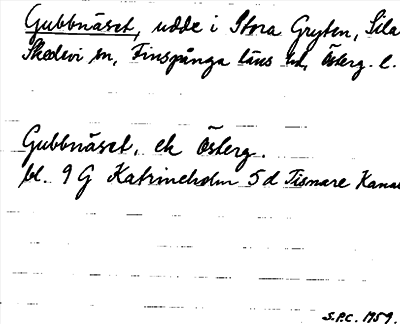 Gubbnäset, udde i Stora Gryten, Sila
Skedevi sn, Finspånga läns hd, Österg. l.
Gubbnäset, ek Österg.
bl. 9 G Katrineholm 5 d Tisnare Kanal
S.P.C. 1959.